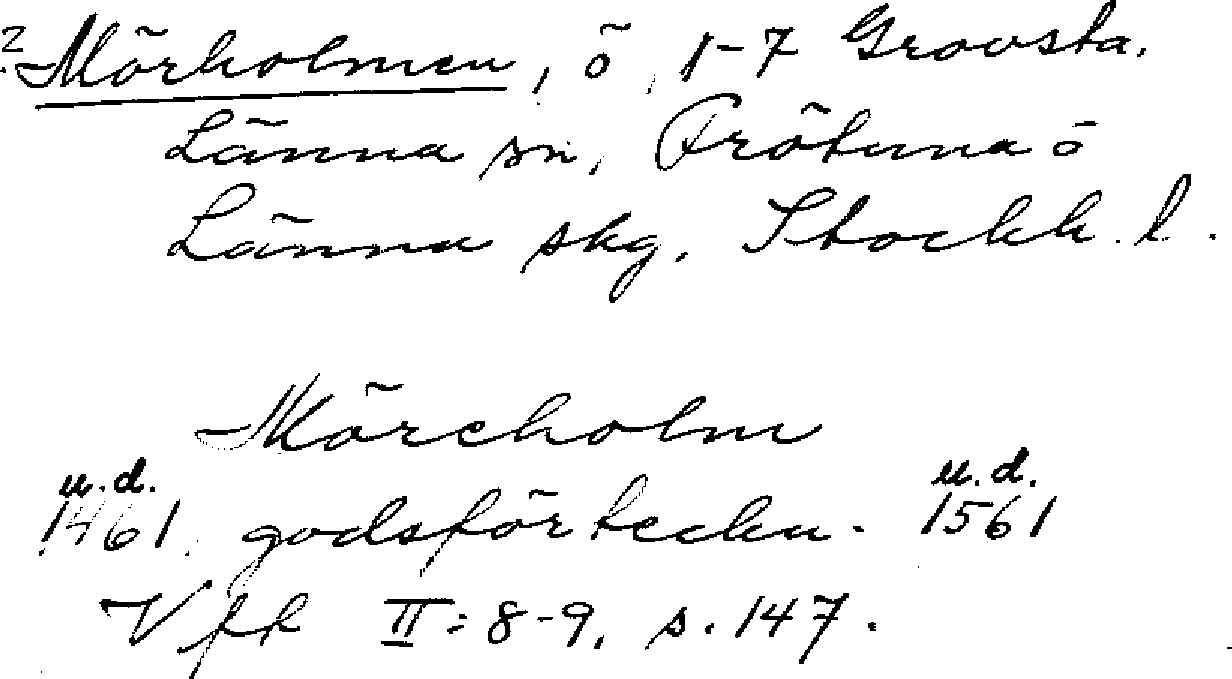 ? Mörholmen, ö, 1-7 Growsta.
Länna sn, Frötuna ö
Länna skg, Stockh. l.
Möreholm
u.d. u.d.
1461. godsförteckn. 1561
Vfk II: 8-9. s. 147.